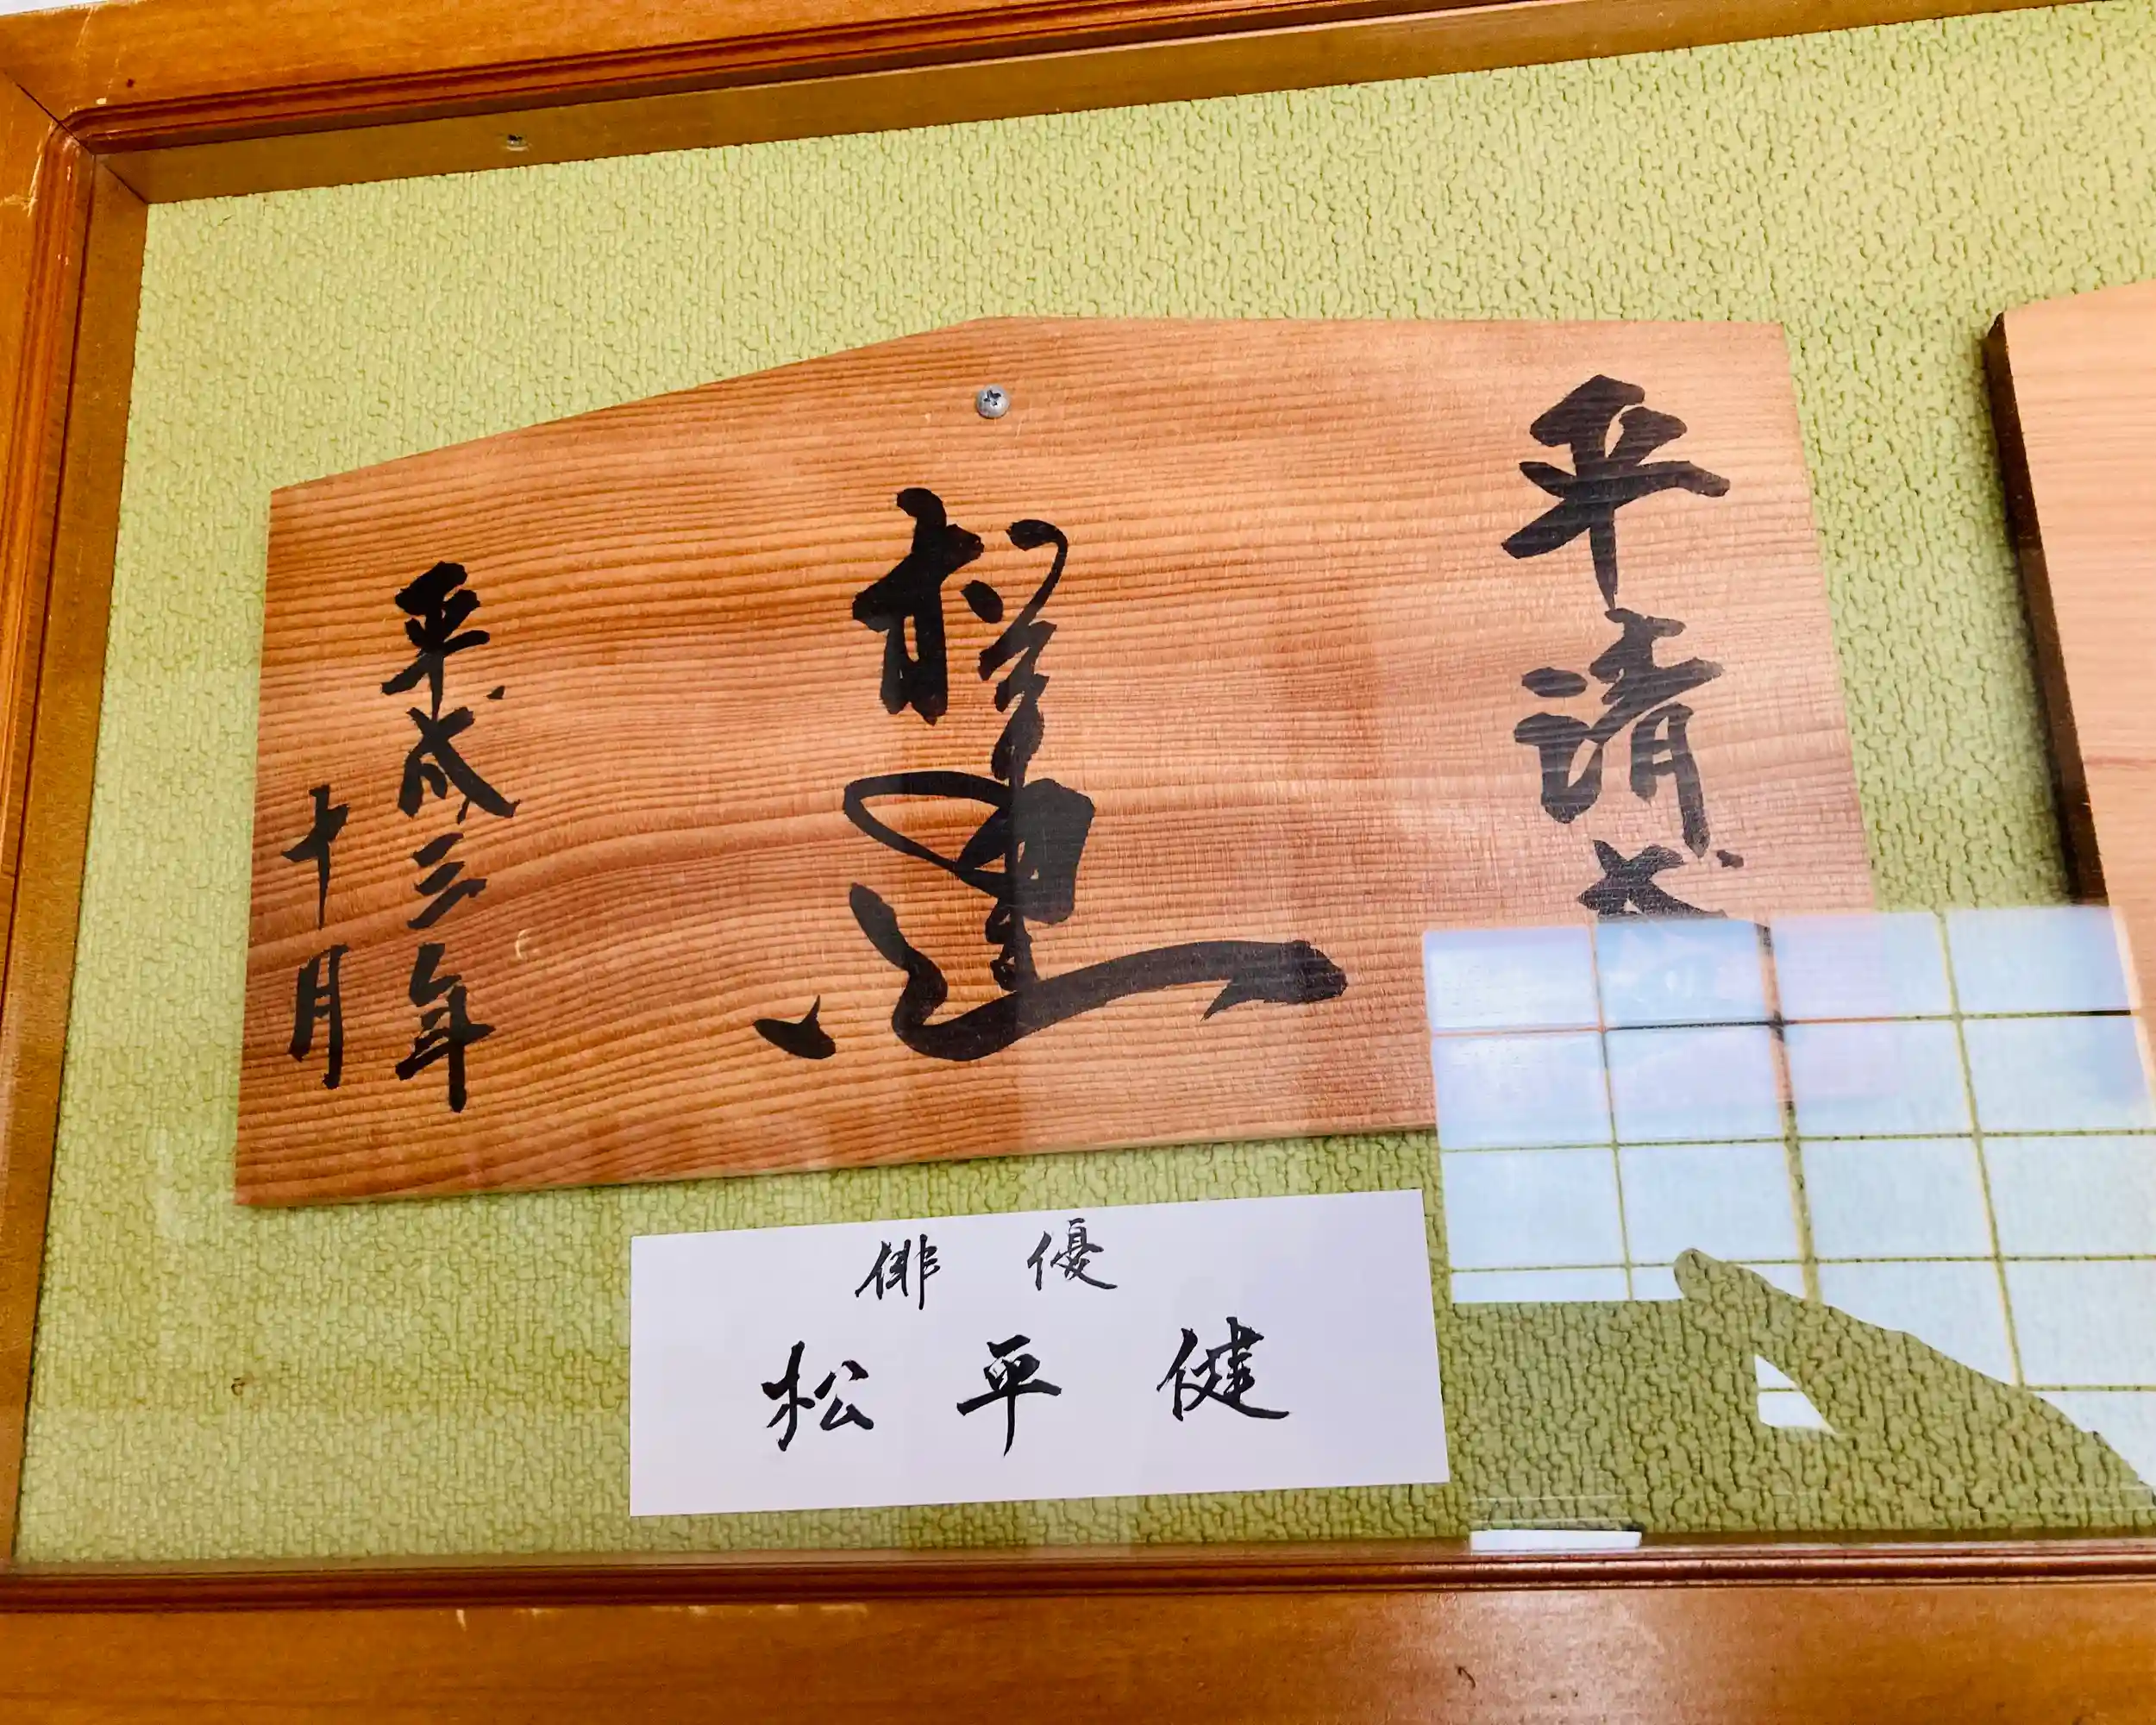 平清盛
松平健
平成三年
十月
俳優
松平健